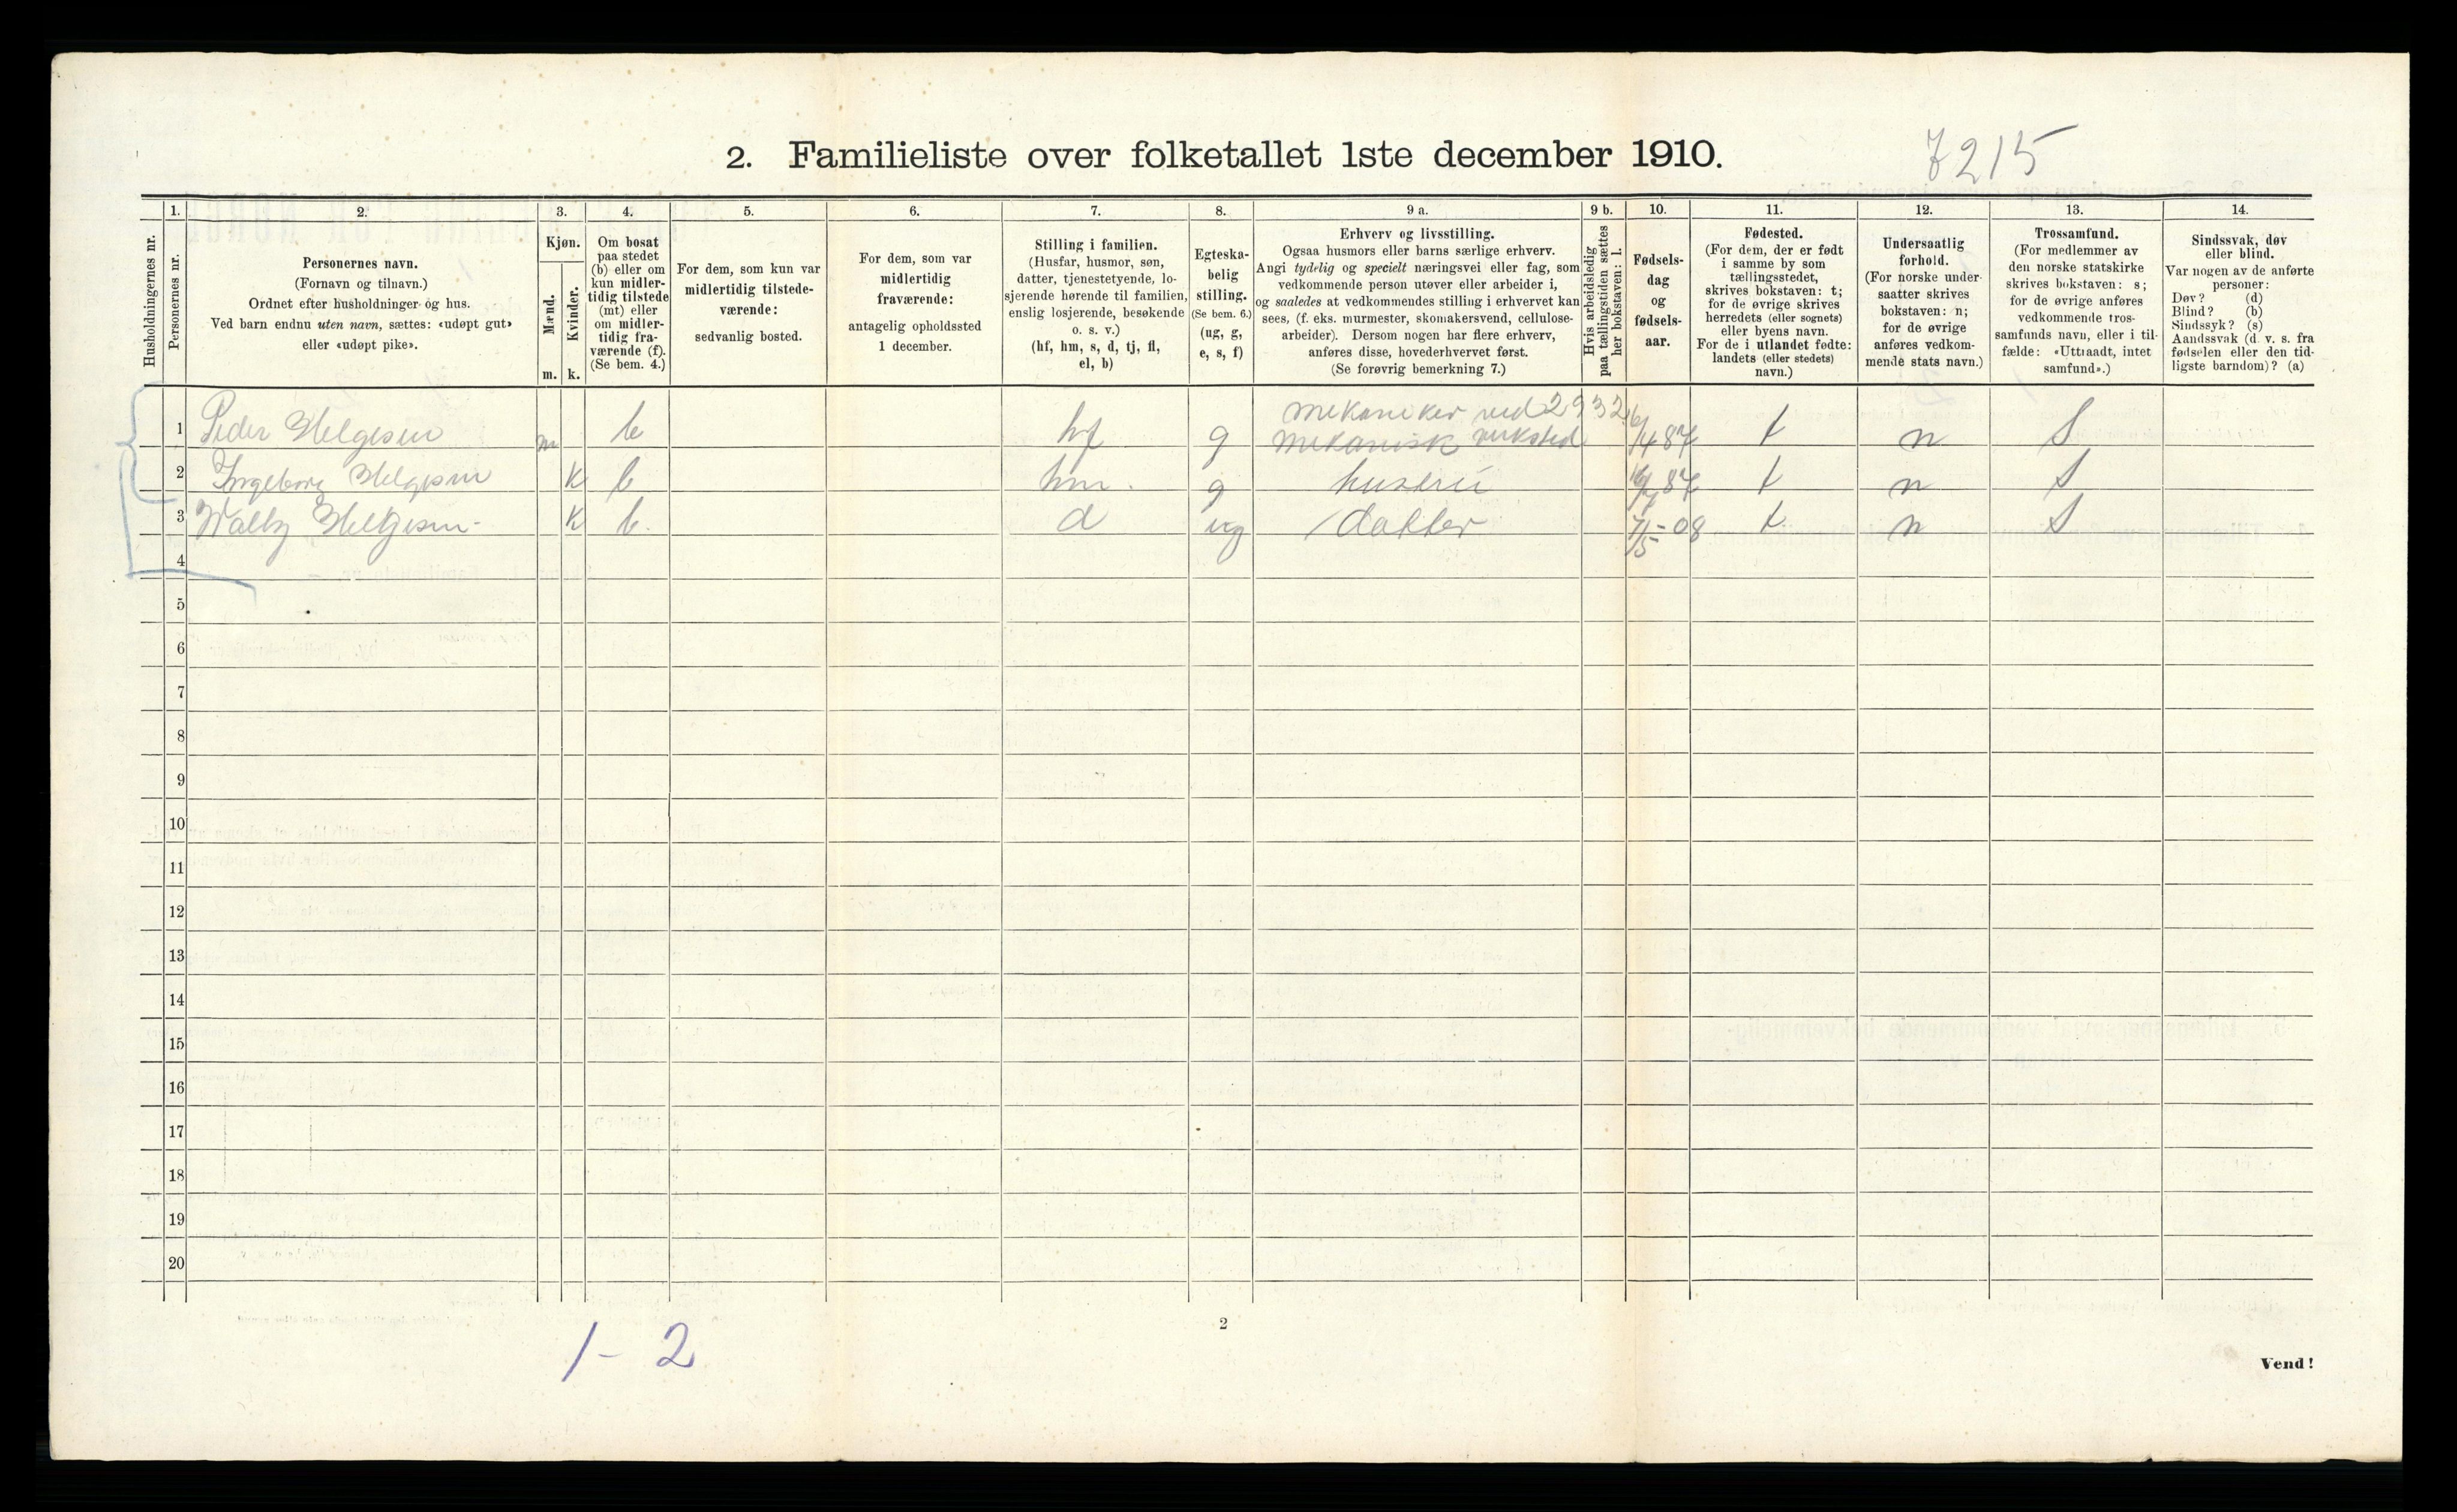 2. Familieliste over folketallet 1ste december 1910.
7215
Husholdningernes nr.
1.
Personernes nr.
2.
Personernes navn.
(Fornavn og tilnavn.)
Ordnet efter husholdninger og hus.
Ved barn endnu uten navn, sættes: «udøpt gut»
eller «udøpt pike».
3.
Kjøn.
Mænd.
Kvinder.
m. k.
4.
Om bosat
paa stedet
(b) eller om
kun midler-
tidig tilstede
(mt) eller
om midler-
tidig fra-
værende (f).
(Se bem. 4.)
5.
For dem, som kun var
midlertidig tilstede-
værende:
sedvanlig bosted.
6.
For dem, som var
midlertidig
fraværende:
antagelig opholdssted
1 december.
7.
Stilling i familien.
(Husfar, husmor, søn,
datter, tjenestetyende, lo-
sjerende hørende til familien,
enslig losjerende, besøkende
o. s. v.)
(hf, hm, s, d, tj, fl,
el, b)
8.
Egteska-
belig
stilling.
(Se bem. 6.)
(ug, g,
e, s, f)
9 a.
Erhverv og livsstilling.
Ogsaa husmors eller barns særlige erhverv.
Angi tydelig og specielt næringsvei eller fag, som
vedkommende person utøver eller arbeider i,
og saaledes at vedkommendes stilling i erhvervet kan
sees, (f. eks. murmester, skomakersvend, cellulose-
arbeider). Dersom nogen har flere erhverv,
anføres disse, hovederhvervet først.
(Se forøvrig bemerkning 7.)
9 b.
Hvis arbeidsledig
paa tællingstiden sættes
her bokstaven: l.
10.
Fødsels-
dag
og
fødsels-
aar.
11.
Fødested.
(For dem, der er født
i samme by som
tællingsstedet,
skrives bokstaven: t;
for de øvrige skrives
herredets (eller sognets)
eller byens navn.
For de i utlandet fødte:
landets (eller stedets)
navn.)
12.
Undersaatlig
forhold.
(For norske under-
saatter skrives
bokstaven: n;
for de øvrige
anføres vedkom-
mende stats navn.)
13.
Trossamfund.
(For medlemmer av
den norske statskirke
skrives bokstaven: s;
for de øvrige anføres
vedkommende tros-
samfunds navn, eller i til-
fælde: «Uttraadt, intet
samfund».)
14.
Sindssvak, døv
eller blind.
Var nogen av de anførte
personer:
Døv? (d)
Blind? (b)
Sindssyk? (s)
Aandssvak (d. v. s. fra
fødselen eller den tid-
ligste barndom)? (a)
mekaniker ved 2932
1 Peder Helgesen m b hf g mekanisk verksted 6/4 87 t n S
2 Ingeborg Helgesen k b hm. g hustru 87 t n S
3 Walby Helgesen k b. d ug datter 7/5-08 t n S
4
5
6
7
8
9
10
11
12
13
14
15
16
17
18
19
20
1-2
2
Vend!